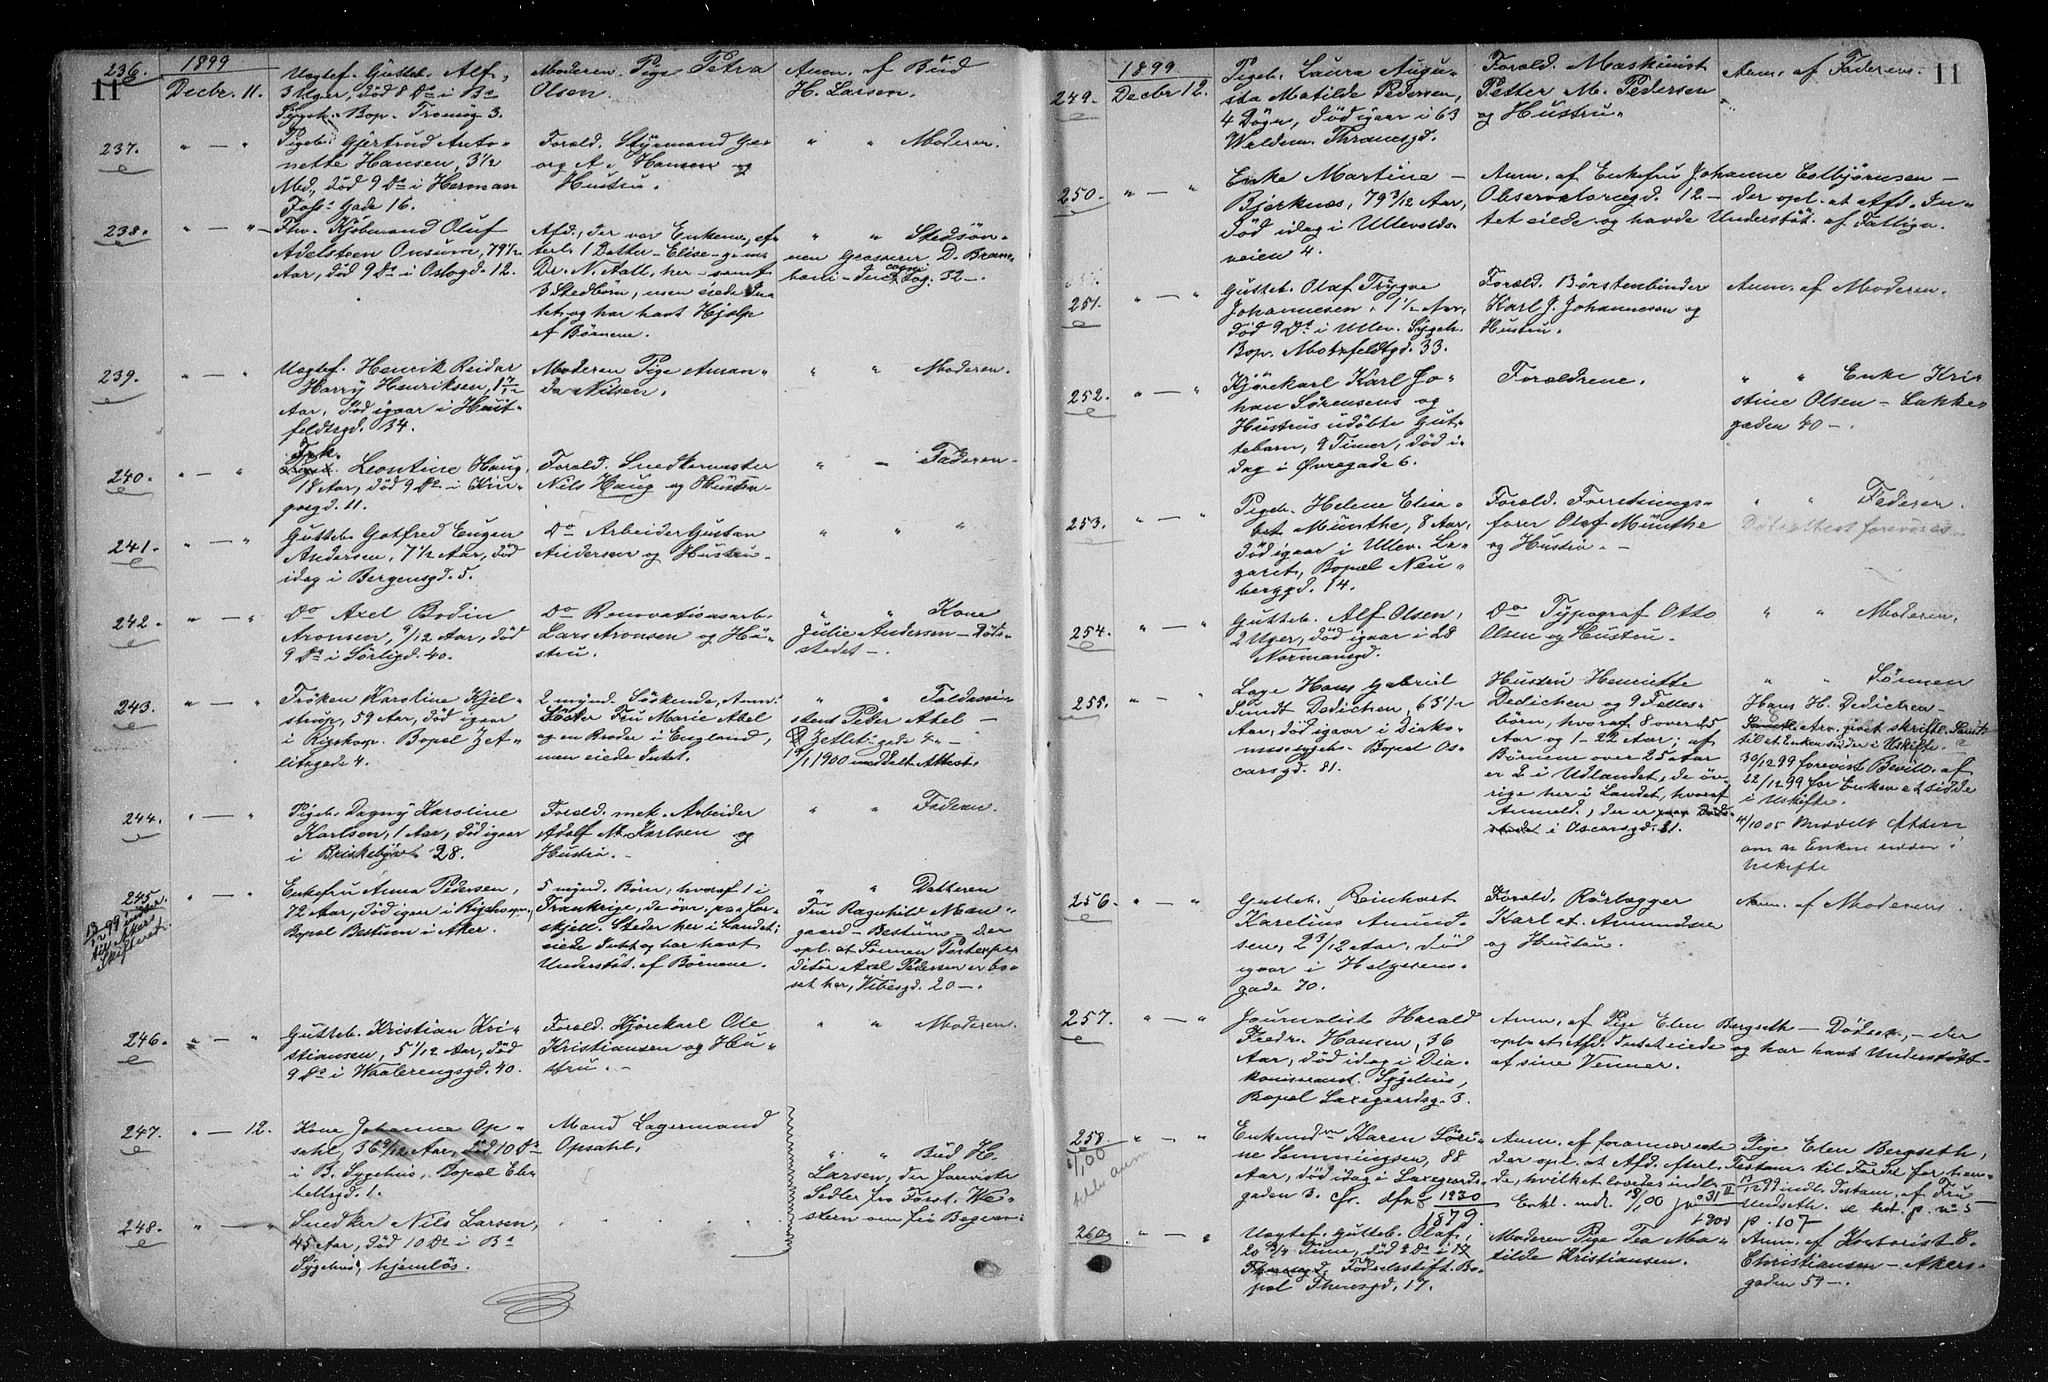 11
236.
1899
Decbr. 11.
Uægtef. Gutteb. Alf,
3 Uger, død 8 Ds i Bs
Sygeh. Bop. Tromsøg 3.
Moderen Pige Petra
Olsen.
Anm. af Bud
H. Larsen.
237.
" — "
Pigeb. Gjertrud Anto-
nette Hansen, 3 1/2
Md, død 9 Ds i Herman
Foss' Gade 16.
Foreld. Styrmand Ge-
org A. Hansen og
Hustru.
" " Moderen.
238.
" — "
Fhv. Kjøbmand Oluf
Adelsteen Onsum, 79 1/2
Aar, død 9 Ds i Oslogd. 12.
Afd., der var Enkem., ef-
terl. 1 Datter - Elise - g. m.
Dr. N. Aall, her - samt
3 Stedbørn, men eiede In-
tet og har havt Hjælp
af Børnene.
" " Stedsøn-
nen Grosserer D. Bram-
bani - Incognitog. 32 -.
239.
" — "
Uægtef. Henrik Reidar
Harry Henriksen, 1 7/12
Aar, død igaar i Huit-
feldtsgd. 34.
Moderen Pige Aman-
da Nilsen.
" " Moderen.
240.
" — "
Frk.
Leontine Haug,
18 Aar, død 9 Ds i Krin-
gosgd. 11.
Foreld. Snedkermester
Nils Haug og Hustru.
" — Faderen.
241.
" — "
Gutteb. Gotfred Eugen
Andersen, 7 1/2 Aar, død
idag i Bergensgd. 5.
Do Arbeider Gustav
Andersen og Hustru.
" " "
242.
" — "
Do Axel Bodin
Aronsen, 9/12 Aar, død
9 Ds i Sørligd. 40.
Do Renovationsarb.
Lars Aronsen og Hu-
stru.
" " Kone
Julie Andersen - Døds-
stedet -.
243.
" — "
Frøken Karoline Kjel-
strup, 59 Aar, død igaar
i Rigshosp. Bopel Zet-
litzgade 4.
2 mynd. Søskende, Anm.
Søster Fru Marie Abel
og en Broder i England,
men eiede Intet.
" " Toldassi-
stent Peter Abel -
Zetlitzgade 4 -
/1 1900 meddelt Attest.
244.
" — "
Pigeb. Dagny Karoline
Karlsen, 1 Aar, død igaar
i Briskebyvt. 28.
Foreld. mek. Arbeider
Adolf M. Karlsen og
Hustru. -
" " Faderen.
245.
" — "
13/12 99 indber.
til Aker
Skifteret.
Enkefru Anna Pedersen,
72 Aar, død igaar i Rigshosp.
Bopel Bestum i Aker.
5 mynd. Børn, hvoraf 1 i
Frankrige, de øvr. paa for-
skjell. Steder her i Landet;
eiede Intet og har havt
Understøt. af Børnene.
" " Datteren
Fru Ragnhild Man-
gaard - Bestum - der
opl. at Sønnen Postexpe-
ditør Axel Pedersen er bo-
sat her, Vibesgd. 20 -.
246.
" — "
Gutteb. Kristian Kri-
stiansen, 5 1/12 Aar, død
9 Ds i Waalerengsgd. 40.
Foreld. Kjørekarl Ole
Kristiansen og Hu-
stru. -
" " Moderen.
247.
" — 12.
Kone Johanna Op-
sahl, 36 9/12 Aar, død 10 Ds
i B. Sygehus, Bopel Elisa-
bethgd. 1.
Mand Lagermand
Opsahl.
" " Bud H.
Larsen, der foreviste
Sedler fra Forst. We-
stern om fri Begrav.
248.
" — "
Snedker Nils Larsen,
45 Aar, død 10 Ds i Bs
Sygehus, hjemløs.
11
1899
249.
Decbr 12.
Pigeb. Laura Augu-
sta Matilde Pedersen,
4 Døgn, død igaar i 63
Waldem. Thranesgd.
Foreld. Maskinist
Petter M. Pedersen
og Hustru.
Anm. af Faderen.
250.
" — "
Enke Martine -
Bjerknæs, 79 3/12 Aar,
død idag i Ullevolds-
veien 4.
Anm. af Enkefru Johanne Esbjørnsen -
Observatoriegd. 12 - der opl. at Afd. In-
tet eiede og havde Understøt. af Fattigv.
251.
" — "
Gutteb. Olaf Trygve
Johannesen, 1 1/2 Aar,
død 9 Ds i Ullev. Sygeh.
Bop. Motzfeldtgd. 33.
Foreld. Børstenbinder
Karl J. Johannesen og
Hustru.
Anm. af Moderen.
252.
" — "
Kjørekarl Karl Jo-
han Sørensens og
Hustrus udøbte Gut-
tebarn, 9 Timer, død i-
dag i Øvregade 6.
Foreldrene.
" " Enke Kri-
stine Olsen - Lakke-
gaden 40 -.
253.
" — "
Pigeb. Helene Elisa-
bet Münthe, 8 Aar,
død igaar i Ullev. La-
zaret, Bopel Neu-
berggd. 14.
Foreld. Forretnings-
fører Olaf Münthe
og Hustru. -
" " Faderen.
Dåbsattest forevises
254.
" — "
Gutteb. Alf Olsen,
2 Uger, død igaar i 28
Normansgd.
Do Typograf Otto
Olsen og Hustru.
" " Moderen.
255.
" — "
Læge Hans Gabriel
Sundt Dedichen, 63 1/2
Aar, død igaar i Diako-
nissesygeh. Bopel Os-
carsgd. 81.
Hustru Henriette
Dedichen og 9 Felles-
børn, hvoraf 8 over 25
Aar og 1 - 22 Aar; af
Børnene over 25 Aar
er 2 i Udlandet, de øv-
rige her i Landet, hvoraf
Anmeld., der er
i Oscarsgd. 81.
" " Sønnen
Hans H. Dedichen
Arv. givet skriftl. Samt.
til at Enken sidder i Uskifte.
30/12 99 forevist Bevill. af
22/12 99 for Enken at sidde
i Uskifte.
4/10 05 Meddelt Attest
om at Enken sidder i
Uskifte
256.
" — "
Gutteb. Reinhart
Karelius Amund-
sen, 2 3/12 Aar, død
igaar i Helgesens-
gade 70.
Foreld. Rørlægger
Karl A. Amundsen
og Hustru.
Anm. af Moderen.
257.
" — "
Journalist Harald
Fredr. Hansen, 36
Aar, død idag i Dia-
konisseanst. Sygehus,
Bopel Laxegaardsg. 3.
Anm. af Pige Elen Bergseth - Dødsst., - der
opl. at Afd. Intet eiede og har havt Understøt-
af sine Venner.
258.
" — "
Enkemadm Karen Søri-
ne Lemmingsen, 88
Aar, død idag i Laxegaards-
gaden 3. cfr. dfnr 1230
1879.
Anm. af forannævnte Pige Elen Bergseth,
der opl. at Afd. efterl. Testam. til Fordel for han-
de, hvilket lovedes indl. 13/12 99 indl. Testam. af Fru
Undseth. se hos. p. nr 5
p. 107
260
" — "
Uægtef. Gutteb. Olaf,
20 3/4 Time, død 9 Ds i 17
Fødselsstift. Bo-
pel Thensgd. 17.
Moderen Pige Tea Ma-
tilde Kristiansen.
Anm. af Kontorist C.
Christiansen - Akers-
gaden 59 -.